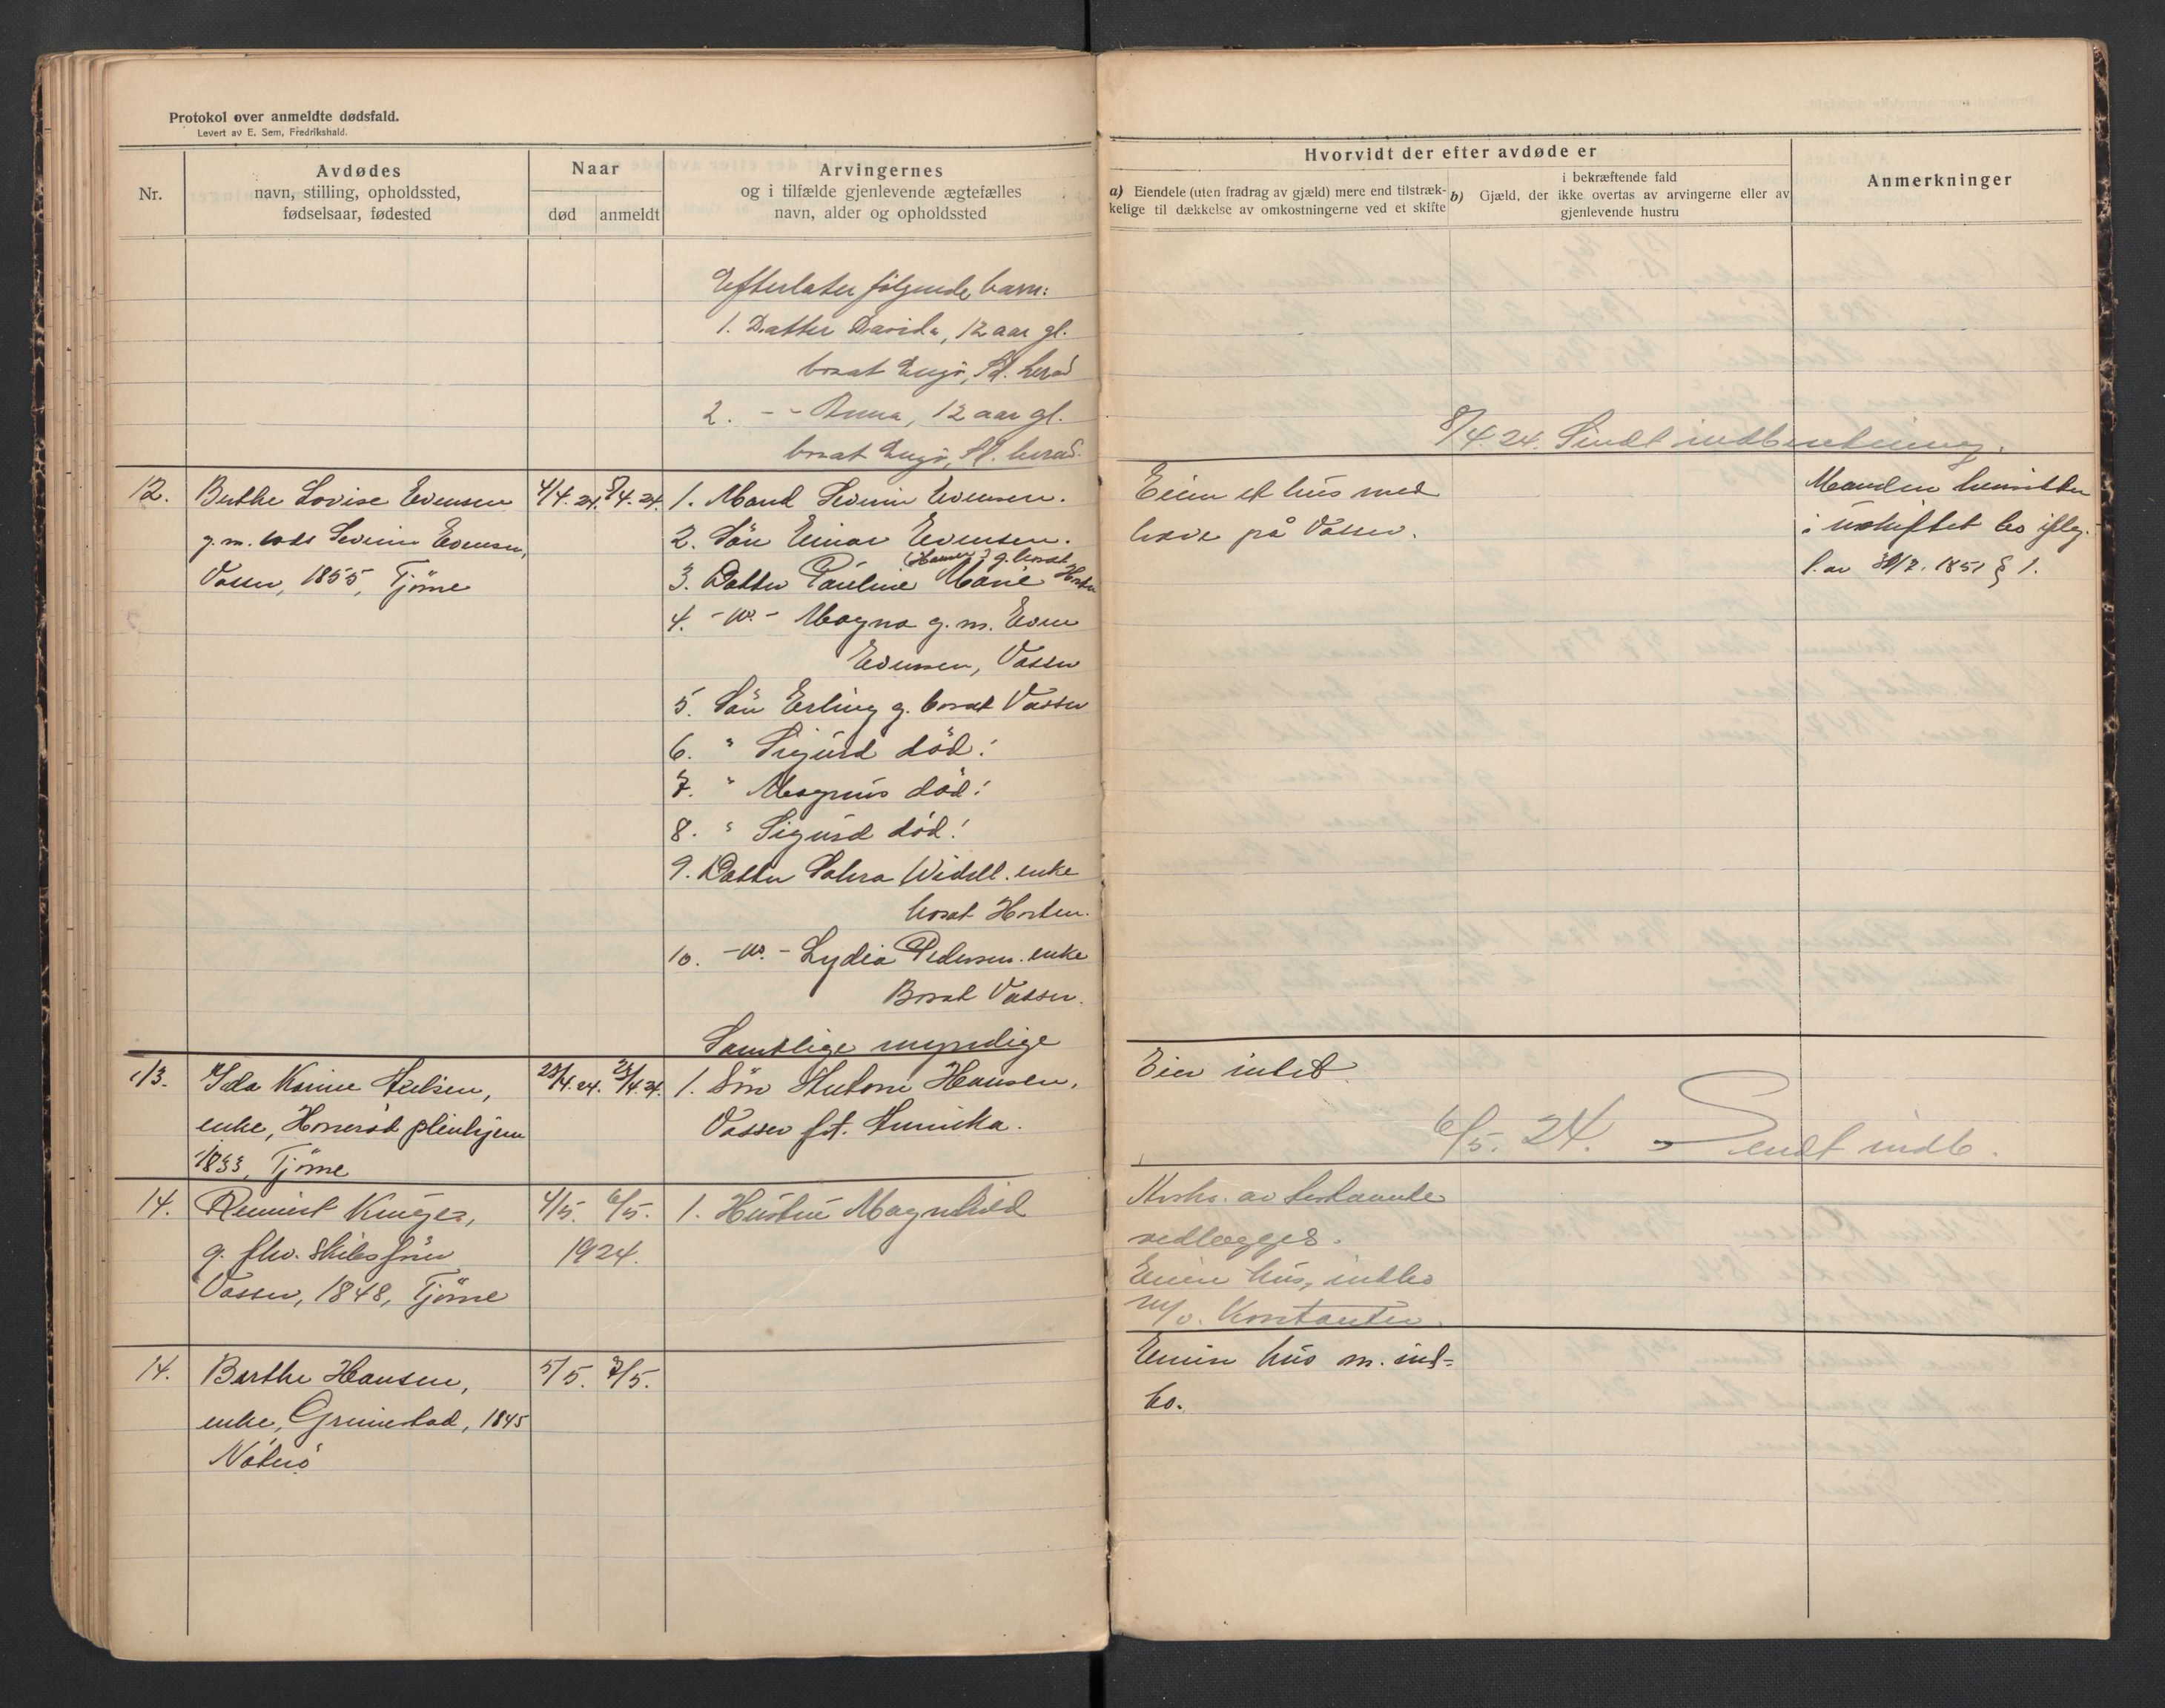 Protokol over anmeldte dødsfald.
Levert av E. Sem, Fredrikshald.
Nr.
Avdødes
navn, stilling, opholdssted,
fødselsaar, fødested
Naar
død
anmeldt
Arvingernes
og i tilfælde gjenlevende ægtefælles
navn, alder og opholdssted
Efterlater følgende barn:
1. Datter Davida, 12 aar gl.
bosat Engø, Sl. herad
2. - - Anna, 12 aar gl.
bosat Engø, Sl. herad.
12. Berthe Lovise Evensen 4/4. 24. 8/4. 24. 1. Mand Severin Evensen.
g. m. Severin Evensen, 2. Sön Einar Evensen.
(Hansen) g. bosat
Vasser, 1855, Tjöme 3. Datter Pauline Marie Horten
4. -"- Magna g. m. Even
Evensen, Vasser
5. Sön Erling g. bosat Vasser
6. " Sigurd död!
7. " Magnus död!
8. " Sigurd död!
9. Datter Widell. enke
bosat Horten.
10. -"- Lydia Pedersen. enke
Bosat Vasser.
Samtlige myndige
13. Ida Karine Nilsen, 23/4. 24. 23/4. 24. 1. Sön Anton Hansen,
enke, pleiehjem Vasser fot. Amerika.
1833, Tjöme
14. Kruge, 4/5. 6/5. 1. Hustru Magnhild
g. fhv. skibsfører 1924.
Vasser, 1848, Tjöme
14. Berthe Hansen, 5/5. 7/5.
enke, Grimestad, 1845
Nøterø
Hvorvidt der efter avdøde er
a) Eiendele (uten fradrag av gjæld) mere end tilstræk-
kelige til dækkelse av omkostningerne ved et skifte
i bekræftende fald
b) Gjæld, der ikke overtas av arvingerne eller av
gjenlevende hustru
Anmerkninger
8/4. 24. Sendt indberetning.
Eiier et hus med
have på Vasser.
Manden hensitter
i uskiftet bo iflg.
l. av 30/7. 1851 § 1.
Eier intet
6/5. 24. Sendt indb.
Avskr. av testamente
vedlægges.
Eiier hus, indbo
m/v. Kontanter.
Eiier hus m. ind-
bo.